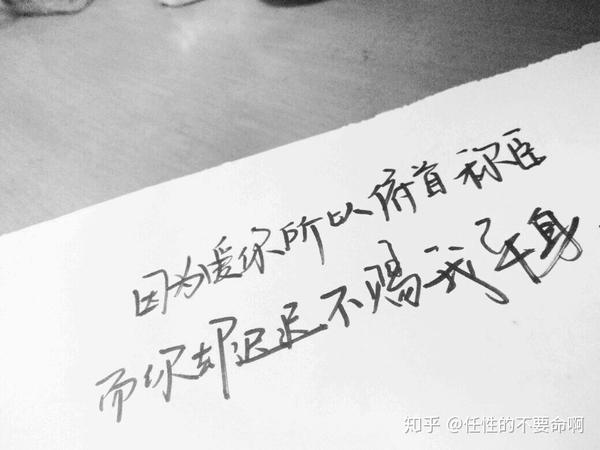 因为爱你所以俯首称臣
而你却迟迟不赐我平身.
知乎 @任性的不要命啊